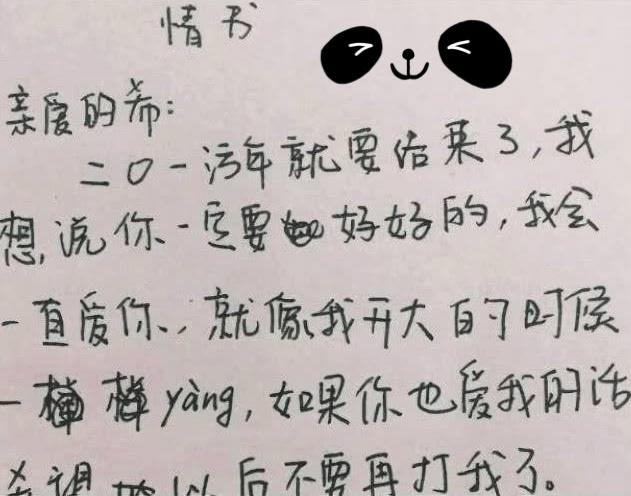 情书
亲爱的希:
二〇一污年就要结来了,我
想说你一定要好好的,我会
一直爱你、,就像我开大白的时候
一样yàng,如果你也爱我的话
希望 以后不要再打我了。